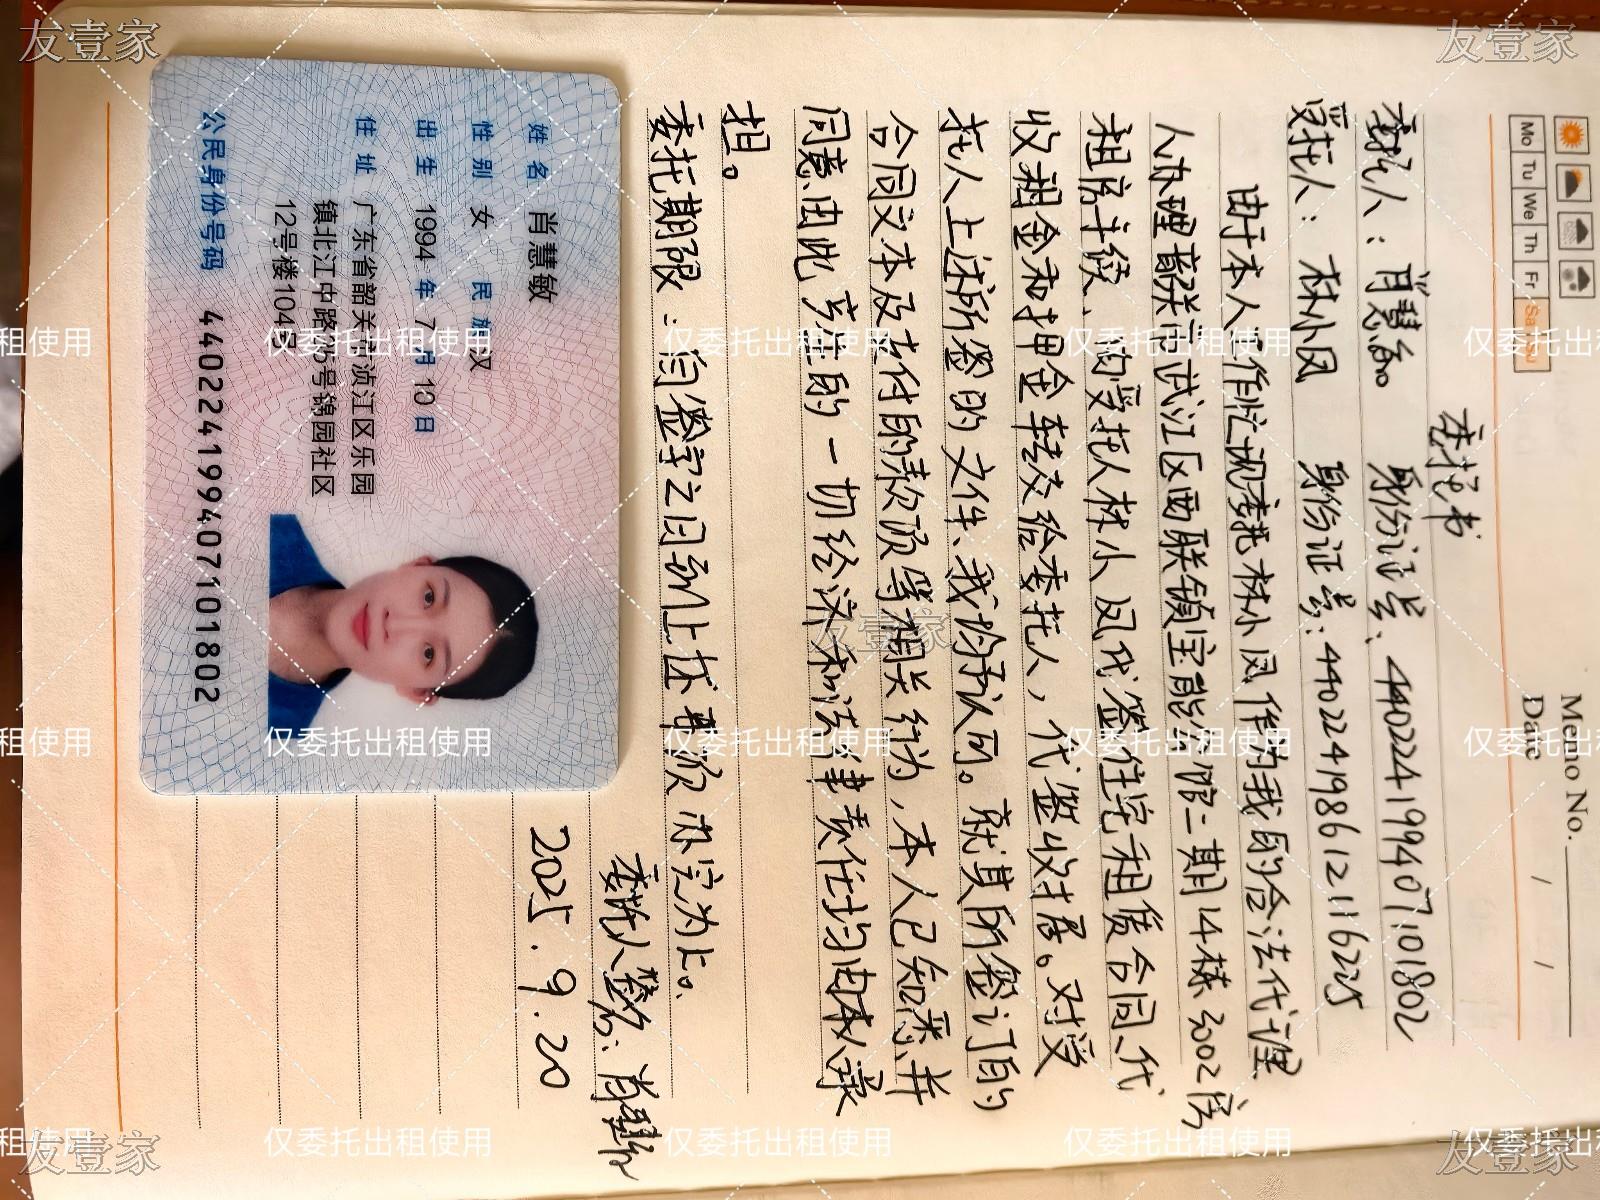 Memo No.
Date / /
Mo Tu We Th Fr Sa Su
委托书
委托人：肖慧敏 身份证号：440224199407101802
受托人：林小凤 身份证号：440224198612116225
由于本人工作忙现委托林小凤作为我的合法代理
人办理韶关市武江区西联镇宝能公馆二期14栋3002房
租房手续、内受托人林小凤代签住宅租赁合同、代
收租金和押金转交给委托人，代签收押居。对受
托人上述所签的文件、我均予认可。就其所签订的
合同文本及支付的款项等相关行为，本人已知悉并
同意、由此产生的一切经济和法律责任均由本人承
担。
委托期限：自签字之日到上述事项办完为止。
委托人签名：肖慧敏
2025.9.20
姓名 肖慧敏
性别 女 民族 汉
出生 1994 年 7 月 10 日
住址 广东省韶关市浈江区乐园
镇北江中路 号锦园社区
12号楼104号
公民身份号码 440224199407101802
友壹家
友壹家
友壹家
友壹家
友壹家
仅委托出租使用
仅委托出租使用
仅委托出租使用
仅委托出租使用
仅委托出租使用
仅委托出租使用
仅委托出租使用
仅委托出租使用
仅委托出租使用